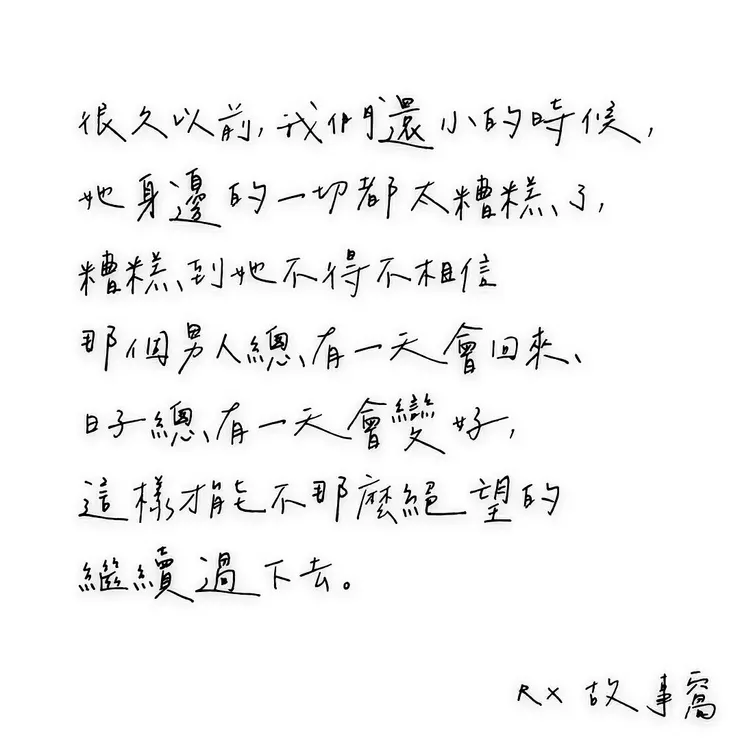 很久以前,我們還小的時候,
她身邊的一切都太糟糕了,
糟糕到她不得不相信
那個男人總有一天會回來、
日子總有一天會變好,
這樣才能不那麼絕望的
繼續過下去。
RX 故事窩